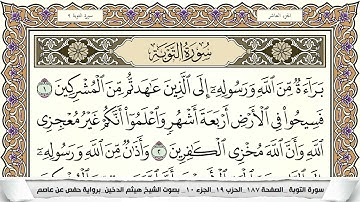 الجزء العاشر
سورة التوبة ٩
سُورَةُ التَّوْبَةِ
بَرَاءَةٌ مِّنَ اللَّهِ وَرَسُولِهِ إِلَى الَّذِينَ عَاهَدتُّم مِّنَ الْمُشْرِكِينَ ١
فَسِيحُوا فِي الْأَرْضِ أَرْبَعَةَ أَشْهُرٍ وَاعْلَمُوا أَنَّكُمْ غَيْرُ مُعْجِزِي
اللَّهِ وَأَنَّ اللَّهَ مُخْزِي الْكَافِرِينَ ٢ وَأَذَانٌ مِّنَ اللَّهِ وَرَسُولِهِ
سورة التوبة _ الصفحة ١٨٧ _ الحزب ١٩ _ الجزء ١٠ _ بصوت الشيخ هيثم الدخين _ برواية حفص عن عاصم